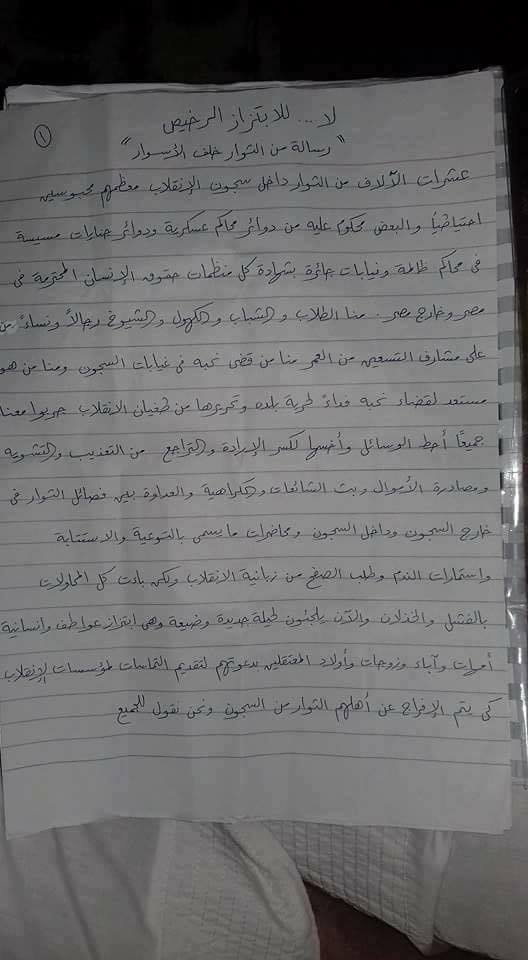 ١
لا ... للابتزاز الرخيص
"رسالة من الثوار خلف الأسوار"
عشرات الآلاف من الثوار داخل سجون الإنقلاب معظمهم محبوسين
احتياطياً والبعض محكوم عليه من دوائر محاكم عسكرية ودوائر جنايات مسيسة
فى محاكم ظالمة ونيابات جائرة بشهادة كل منظمات حقوق الإنسان المحترمة فى
مصر وخارج مصر . منا الطلاب والشباب والكهول والشيوخ رجالاً ونساءً من
على مشارف التسعين من العمر منا من قضى نحبه فى غيابات السجون ومنا من هو
مستعد لقضاء نحبه فداءً لحرية بلده وتحريرها من طغيان الانقلاب جربوا معنا
جميعاً أحط الوسائل وأخسها لكسر الإرادة والتراجع من التعذيب والتشويه
ومصادرة الأموال وبث الشائعات والكراهية والعداوة بين فصائل الثوار فى
خارج السجون وداخل السجون ومحاضرات ما يسمى بالتوعية والاستتابة
واستمارات الندم وطلب الصفح من زبانية الانقلاب ولكن باءت كل المحاولات
بالفشل والخذلان والآن يلجئون لحيلة جديدة وضيعة وهى ابتزاز عواطف وإنسانية
أمهات وآباء وزوجات وأولاد المعتقلين بدعوتهم لتقديم التماسات لمؤسسات الإنقلاب
كى يتم الإفراج عن أهلهم الثوار من السجون ونحن نقول للجميع